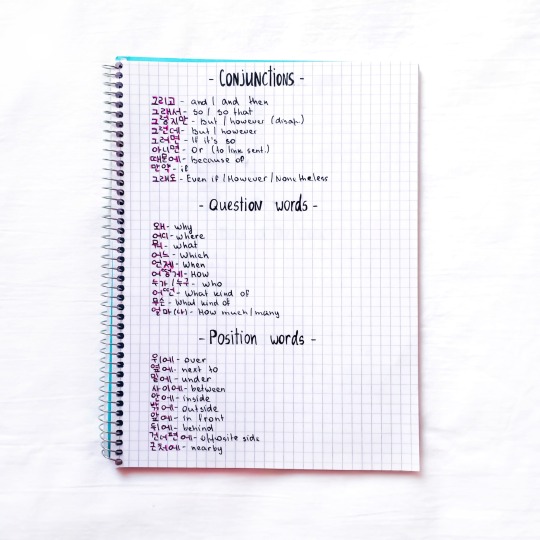 - Conjunctions -
그리고 - and / and then
그래서 - so / so that
그렇지만 - but / however (disap.)
그런데 - but / however
그러면 - If it's so
아니면 - Or (to link sent.)
때문에 - because of
만약 - if
그래도 - Even if / However / Nonetheless
- Question words -
왜 - why
어디 - where
뭐 - what
어느 - which
언제 - when
어떻게 - How
누가 / 누구 - who
어떤 - what kind of
무슨 - what kind of
얼마(나) - How much/many
- Position words -
위에 - over
옆에 - next to
밑에 - under
사이에 - between
안에 - inside
밖에 - outside
앞에 - in front
뒤에 - behind
건너편에 - opposite side
근처에 - nearby